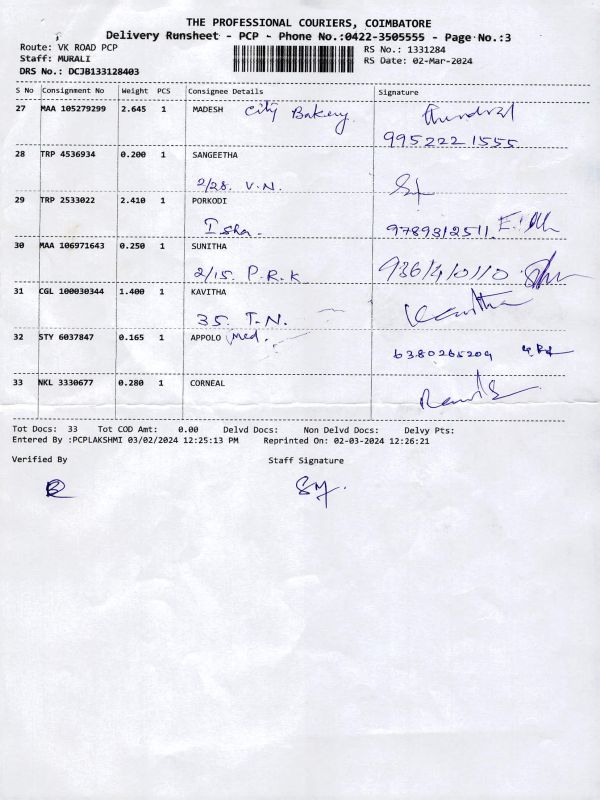 THE PROFESSIONAL COURIERS, COIMBATORE
Delivery Runsheet - PCP - Phone No.:0422-3505555 - Page No.:3
Route: VK ROAD PCP
RS No.: 1331284
Staff: MURALI
RS Date: 02-Mar-2024
DRS No.: DCJB133128403
S No Consignment No Weight PCS Consignee Details Signature
27 MAA 105279299 2.645 1 MADESH City Bakery
995222 1555
28 TRP 4536934 0.200 1 SANGEETHA
2/28. V.N.
29 TRP 2533022 2.410 1 PORKODI
Isha. 9789312511
30 MAA 106971643 0.250 1 SUNITHA
2/15. P.R.K 936/4/0/10
31 CGL 100030344 1.400 1 KAVITHA Kavitha
35. T.N.
32 STY 6037847 0.165 1 APPOLO Med.
6380265209
33 NKL 3330677 0.280 1 CORNEAL
Tot Docs: 33 Tot COD Amt: 0.00 Delvd Docs: Non Delvd Docs: Delvy Pts:
Entered By :PCPLAKSHMI 03/02/2024 12:25:13 PM Reprinted On: 02-03-2024 12:26:21
Verified By Staff Signature